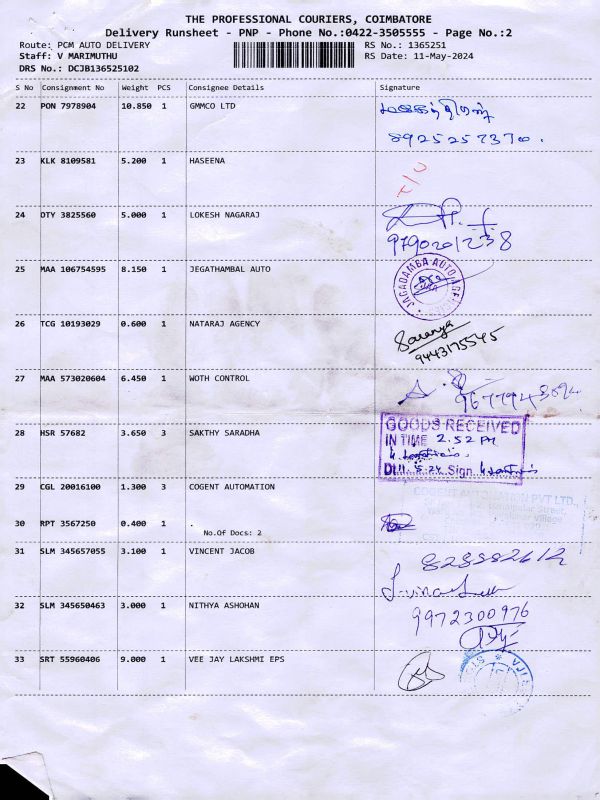 THE PROFESSIONAL COURIERS, COIMBATORE
Delivery Runsheet - PNP - Phone No.:0422-3505555 - Page No.:2
Route: PCM AUTO DELIVERY RS No.: 1365251
Staff: V MARIMUTHU RS Date: 11-May-2024
DRS No.: DCJB136525102
S No Consignment No Weight PCS Consignee Details Signature
22 PON 7978904 10.850 1 GMMCO LTD
8925257370.
23 KLK 8109581 5.200 1 HASEENA
24 DTY 3825560 5.000 1 LOKESH NAGARAJ
9790201238
25 MAA 106754595 8.150 1 JEGATHAMBAL AUTO
JAGADAMBA AUTO
26 TCG 10193029 0.600 1 NATARAJ AGENCY
Saranya
9443175545
27 MAA 573020604 6.450 1 WOTH CONTROL
28 HSR 57682 3.650 3 SAKTHY SARADHA
GOODS RECEIVED
IN TIME 2.52 PM
Sign.
29 CGL 20016100 1.300 3 COGENT AUTOMATION
COGENT AUTOMATION PVT LTD.,
30 RPT 3567250 0.400 1
No.Of Docs: 2
31 SLM 345657055 3.100 1 VINCENT JACOB
32 SLM 345650463 3.000 1 NITHYA ASHOHAN
9972300976
33 SRT 55960406 9.000 1 VEE JAY LAKSHMI EPS